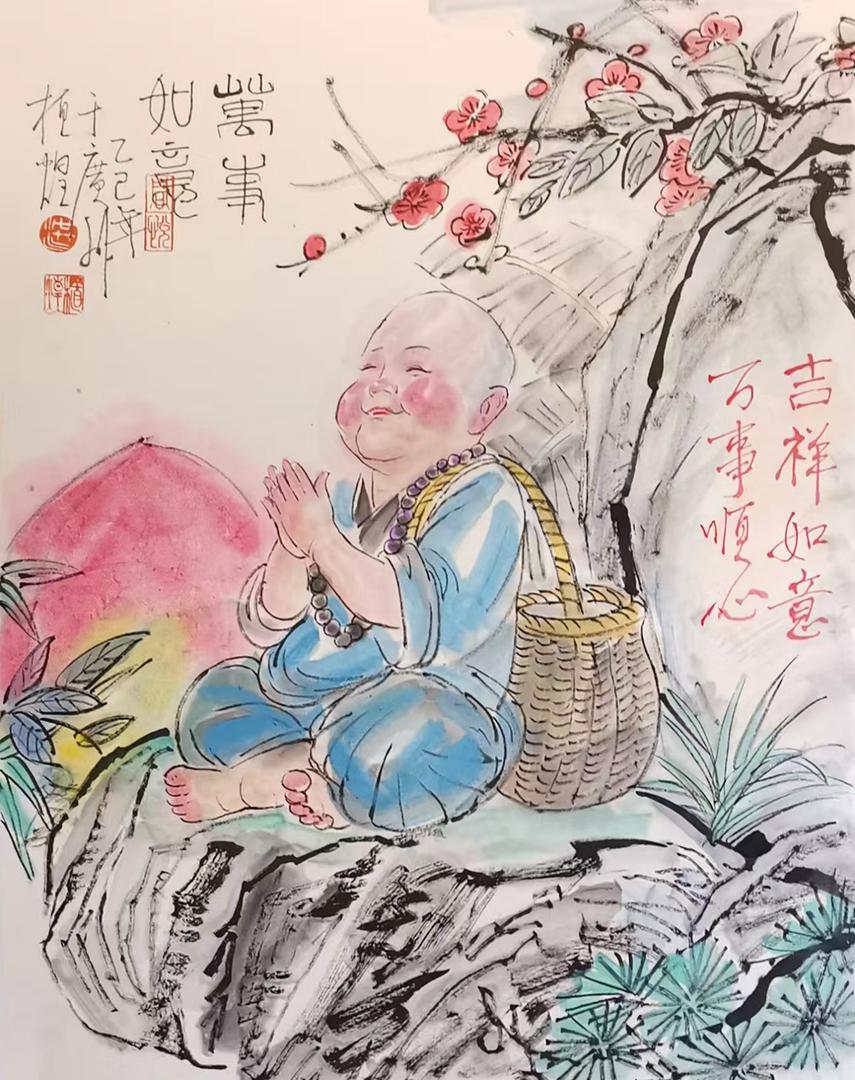 吉祥如意
万事順心
萬事
如意
乙巳年
于廣州
植煌